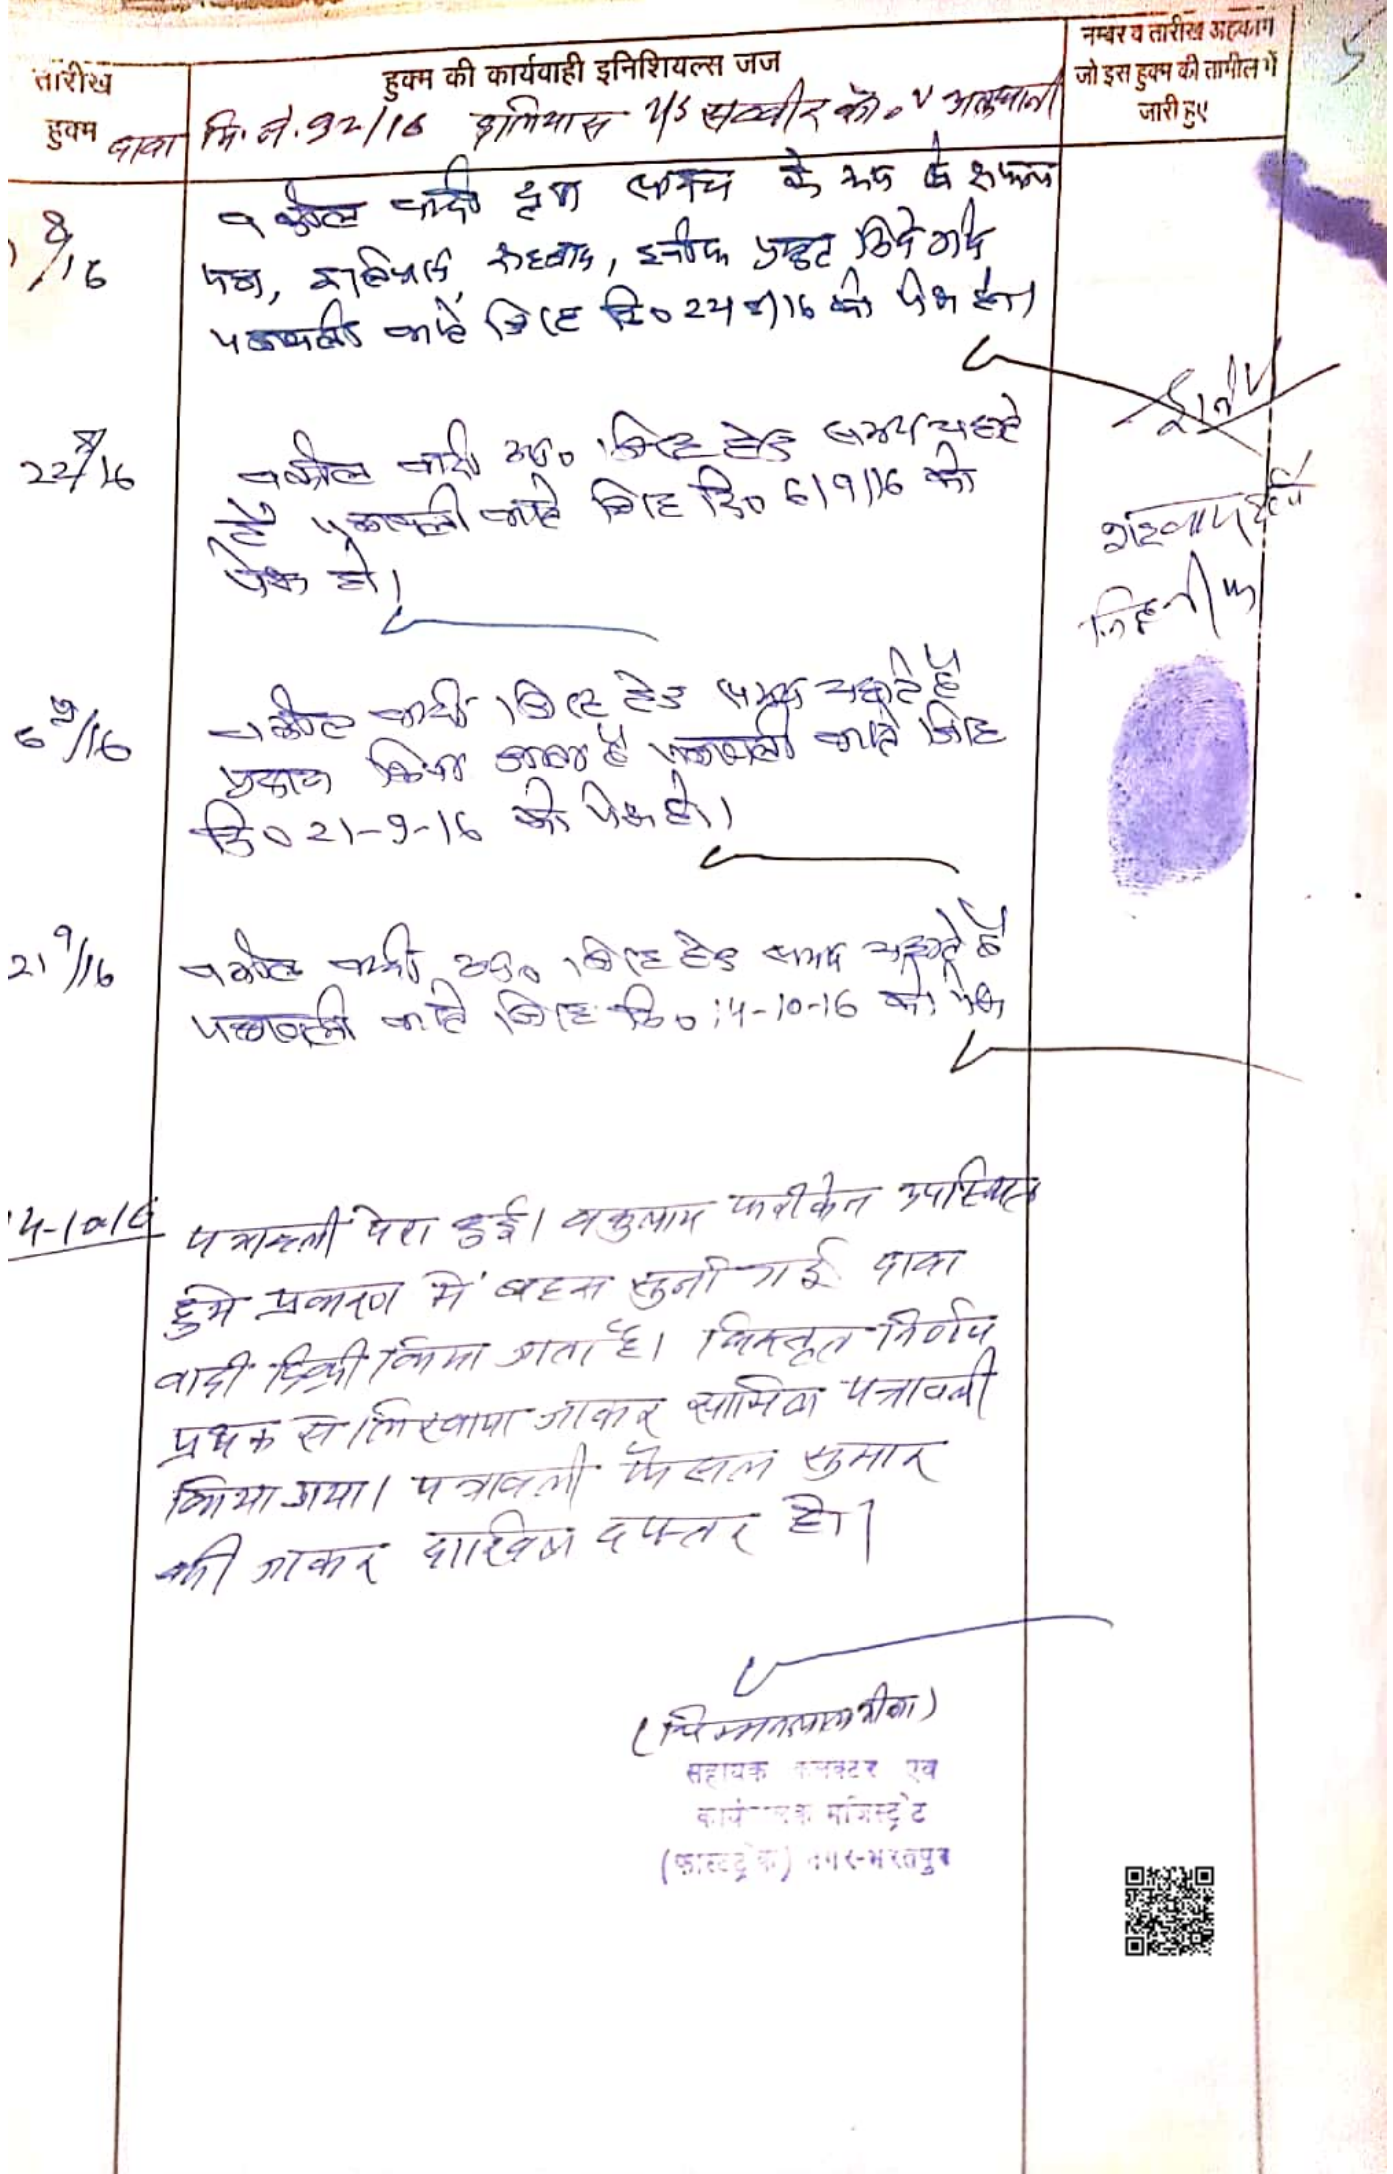 तारीख
हुक्म
हुक्म की कार्यवाही इनिशियल्स जज
नम्बर व तारीख अहकाम
जो इस हुक्म की तामील में
जारी हुए
दावा मि. नं. 92/16 इलियास v/s सब्बीर
8/16
वकील वादी द्वारा के रूप में
पत्र, इलियास, प्रस्तुत किये गये
पत्रावली वास्ते जिरह दि० 22/8/16 को पेश हो।
22/8/16
वकील वादी उप० जिरह हेतु समय चाहते
है पत्रावली वास्ते जिरह दि० 6/9/16 को
पेश हो।
6/9/16
वकील वादी जिरह हेतु समय चाहते है
प्रदान किया जाता है पत्रावली वास्ते जिरह
दि० 21-9-16 को पेश हो।
21/9/16
वकील वादी उप० जिरह हेतु समय चाहते है
पत्रावली वास्ते जिरह दि० 14-10-16 को पेश
14-10-16
पत्रावली पेश हुई। वकुलाय फरीकेन उपस्थित
हुये प्रकरण में बहस सुनी गई दावा
वादी डिक्री किया जाता है। विस्तृत निर्णय
प्रथक से लिखाया जाकर सामिल पत्रावली
किया गया। पत्रावली फैसल सुमार
की जाकर दाखिल दफ्तर हो।
सहायक कलक्टर एवं
कार्यपालक मजिस्ट्रेट
(फास्ट ट्रेक) नगर-भरतपुर